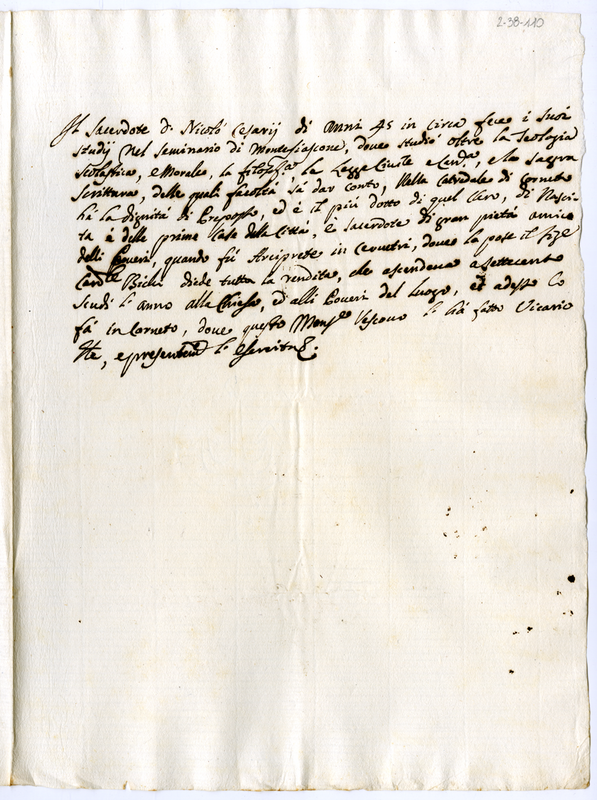 2-38-110
Il Sacerdote D. Nicolò Cesarij di Anni 45 in Circa fece i Suoi
Studij Nel Seminario di Montefiascone, dove studiò oltre la Teologia
Scolastica, e Morale, la filosofica, la Legge Civile e Can.ca, e la Sagra
Scrittura, delle quali facoltà sà dar conto, Nella Catedrale di Corneto
hà la dignità di Preposto, ed è il più dotto di quel Clero, di Nasci-
ta è delle prime Case della Città, è Sacerdote di gran pietà amico
delli Poveri, quando fù Arciprete in Cervetri, dove lo pose il
Card.le Bichi diede tutta la rendita, che ascendeva a settecento
Scudi l'anno alla Chiesa, ed'alli Poveri del luogo, et adesso lo
fà in Corneto, dove questo Mons.re Vescovo l'hà fatto Vicario